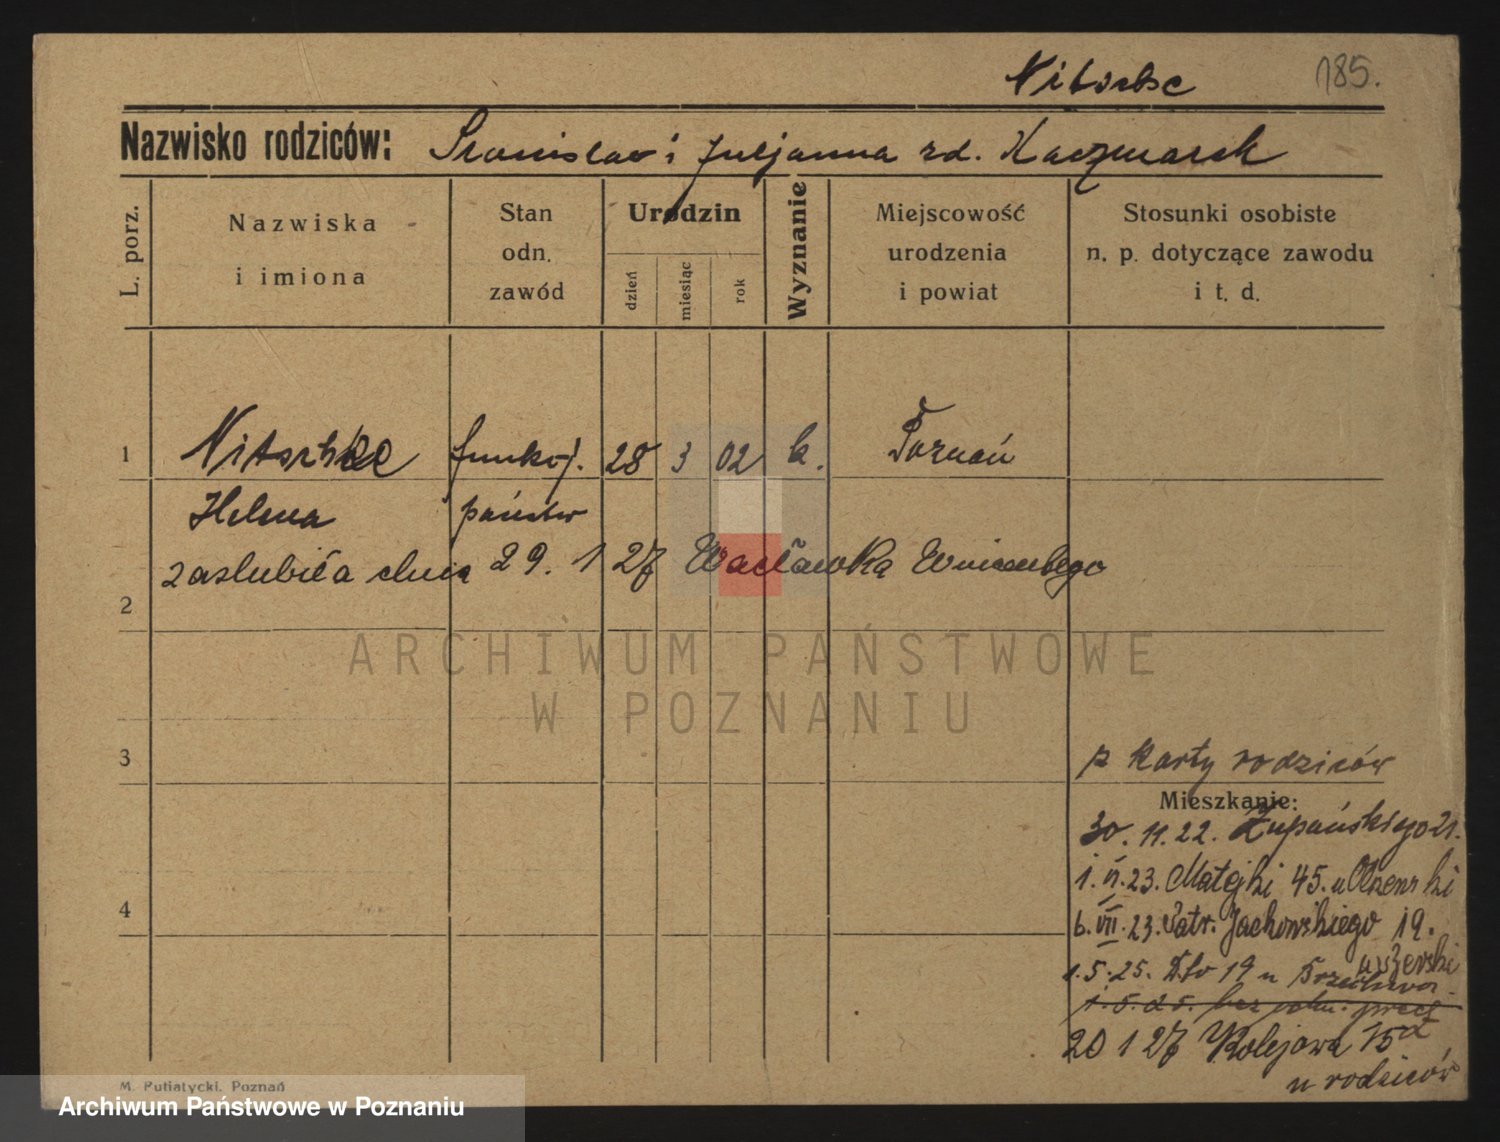 Nitsche 185.
Nazwisko rodziców: Stanisław i Juljanna zd. Kaczmarek
L. porz.
Nazwiska i imiona
Stan odn. zawód
Urodzin
dzień miesiąc rok
Wyznanie
Miejscowość urodzenia i powiat
Stosunki osobiste n. p. dotyczące zawodu i t. d.
1 Nitschke funkcj. 28 3 02 k. Poznań
Helena państw
zaslubiła dnia 29. 1 27 Wacławka Wincentego
2
ARCHIWUM PAŃSTWOWE
W POZNANIU
3
z karty rodziców
Mieszkanie:
30. 11. 22. Żupańskiego 21.
1. VI. 23. Matejki 45. u
4
6. VII. 23. Patr. Jackowskiego 19.
1. 5. 25. Dto 19 u
1. 5. 25. bez
20 1 27 Kolejowa 15
u rodziców
M. Putiatycki, Poznań
Archiwum Państwowe w Poznaniu